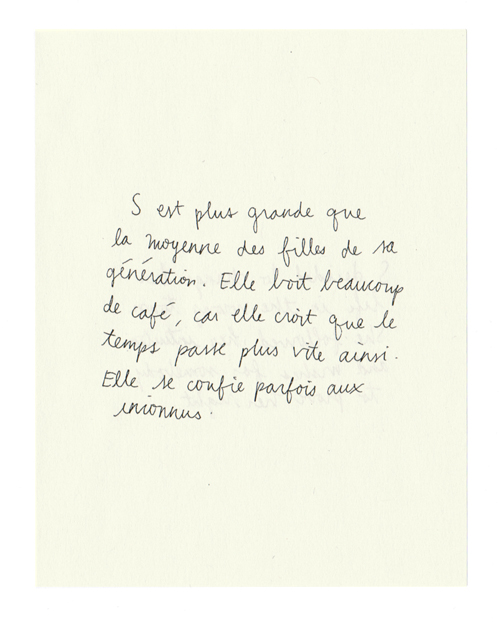 S est plus grande que
la moyenne des filles de sa
génération. Elle boit beaucoup
de café, car elle croit que le
temps passe plus vite ainsi.
Elle se confie parfois aux
inconnus.